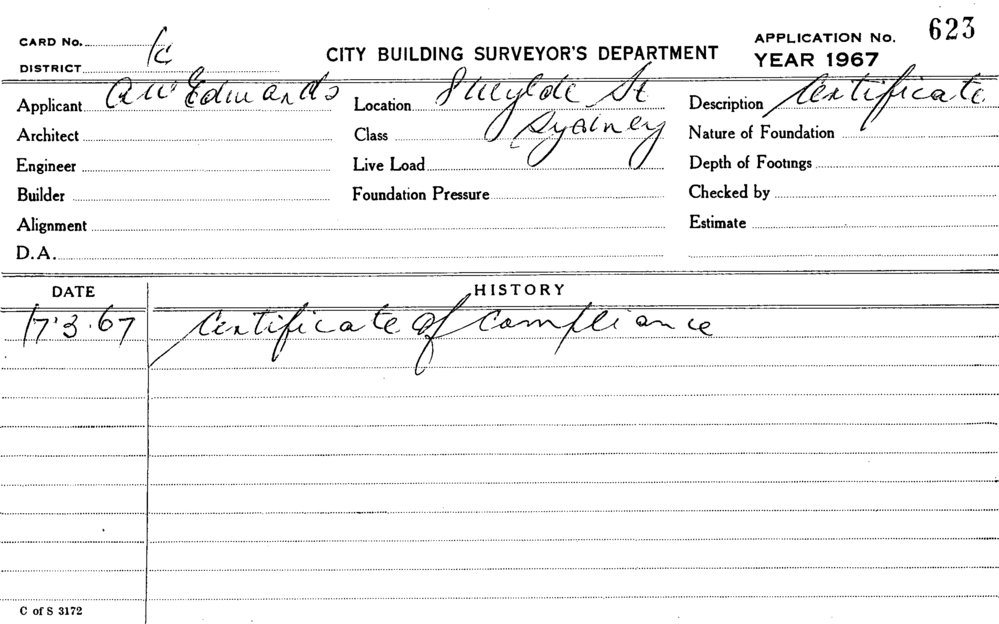 CARD No.
DISTRICT
CITY BUILDING SURVEYOR'S DEPARTMENT
APPLICATION No. 623
YEAR 1967
Applicant A W Edwards
Location St
Description Certificate
Architect
Class Sydney
Nature of Foundation
Engineer
Live Load
Depth of Footings
Builder
Foundation Pressure
Checked by
Alignment
Estimate
D.A.
DATE
HISTORY
17.3.67 Certificate of Compliance
C of S 3172